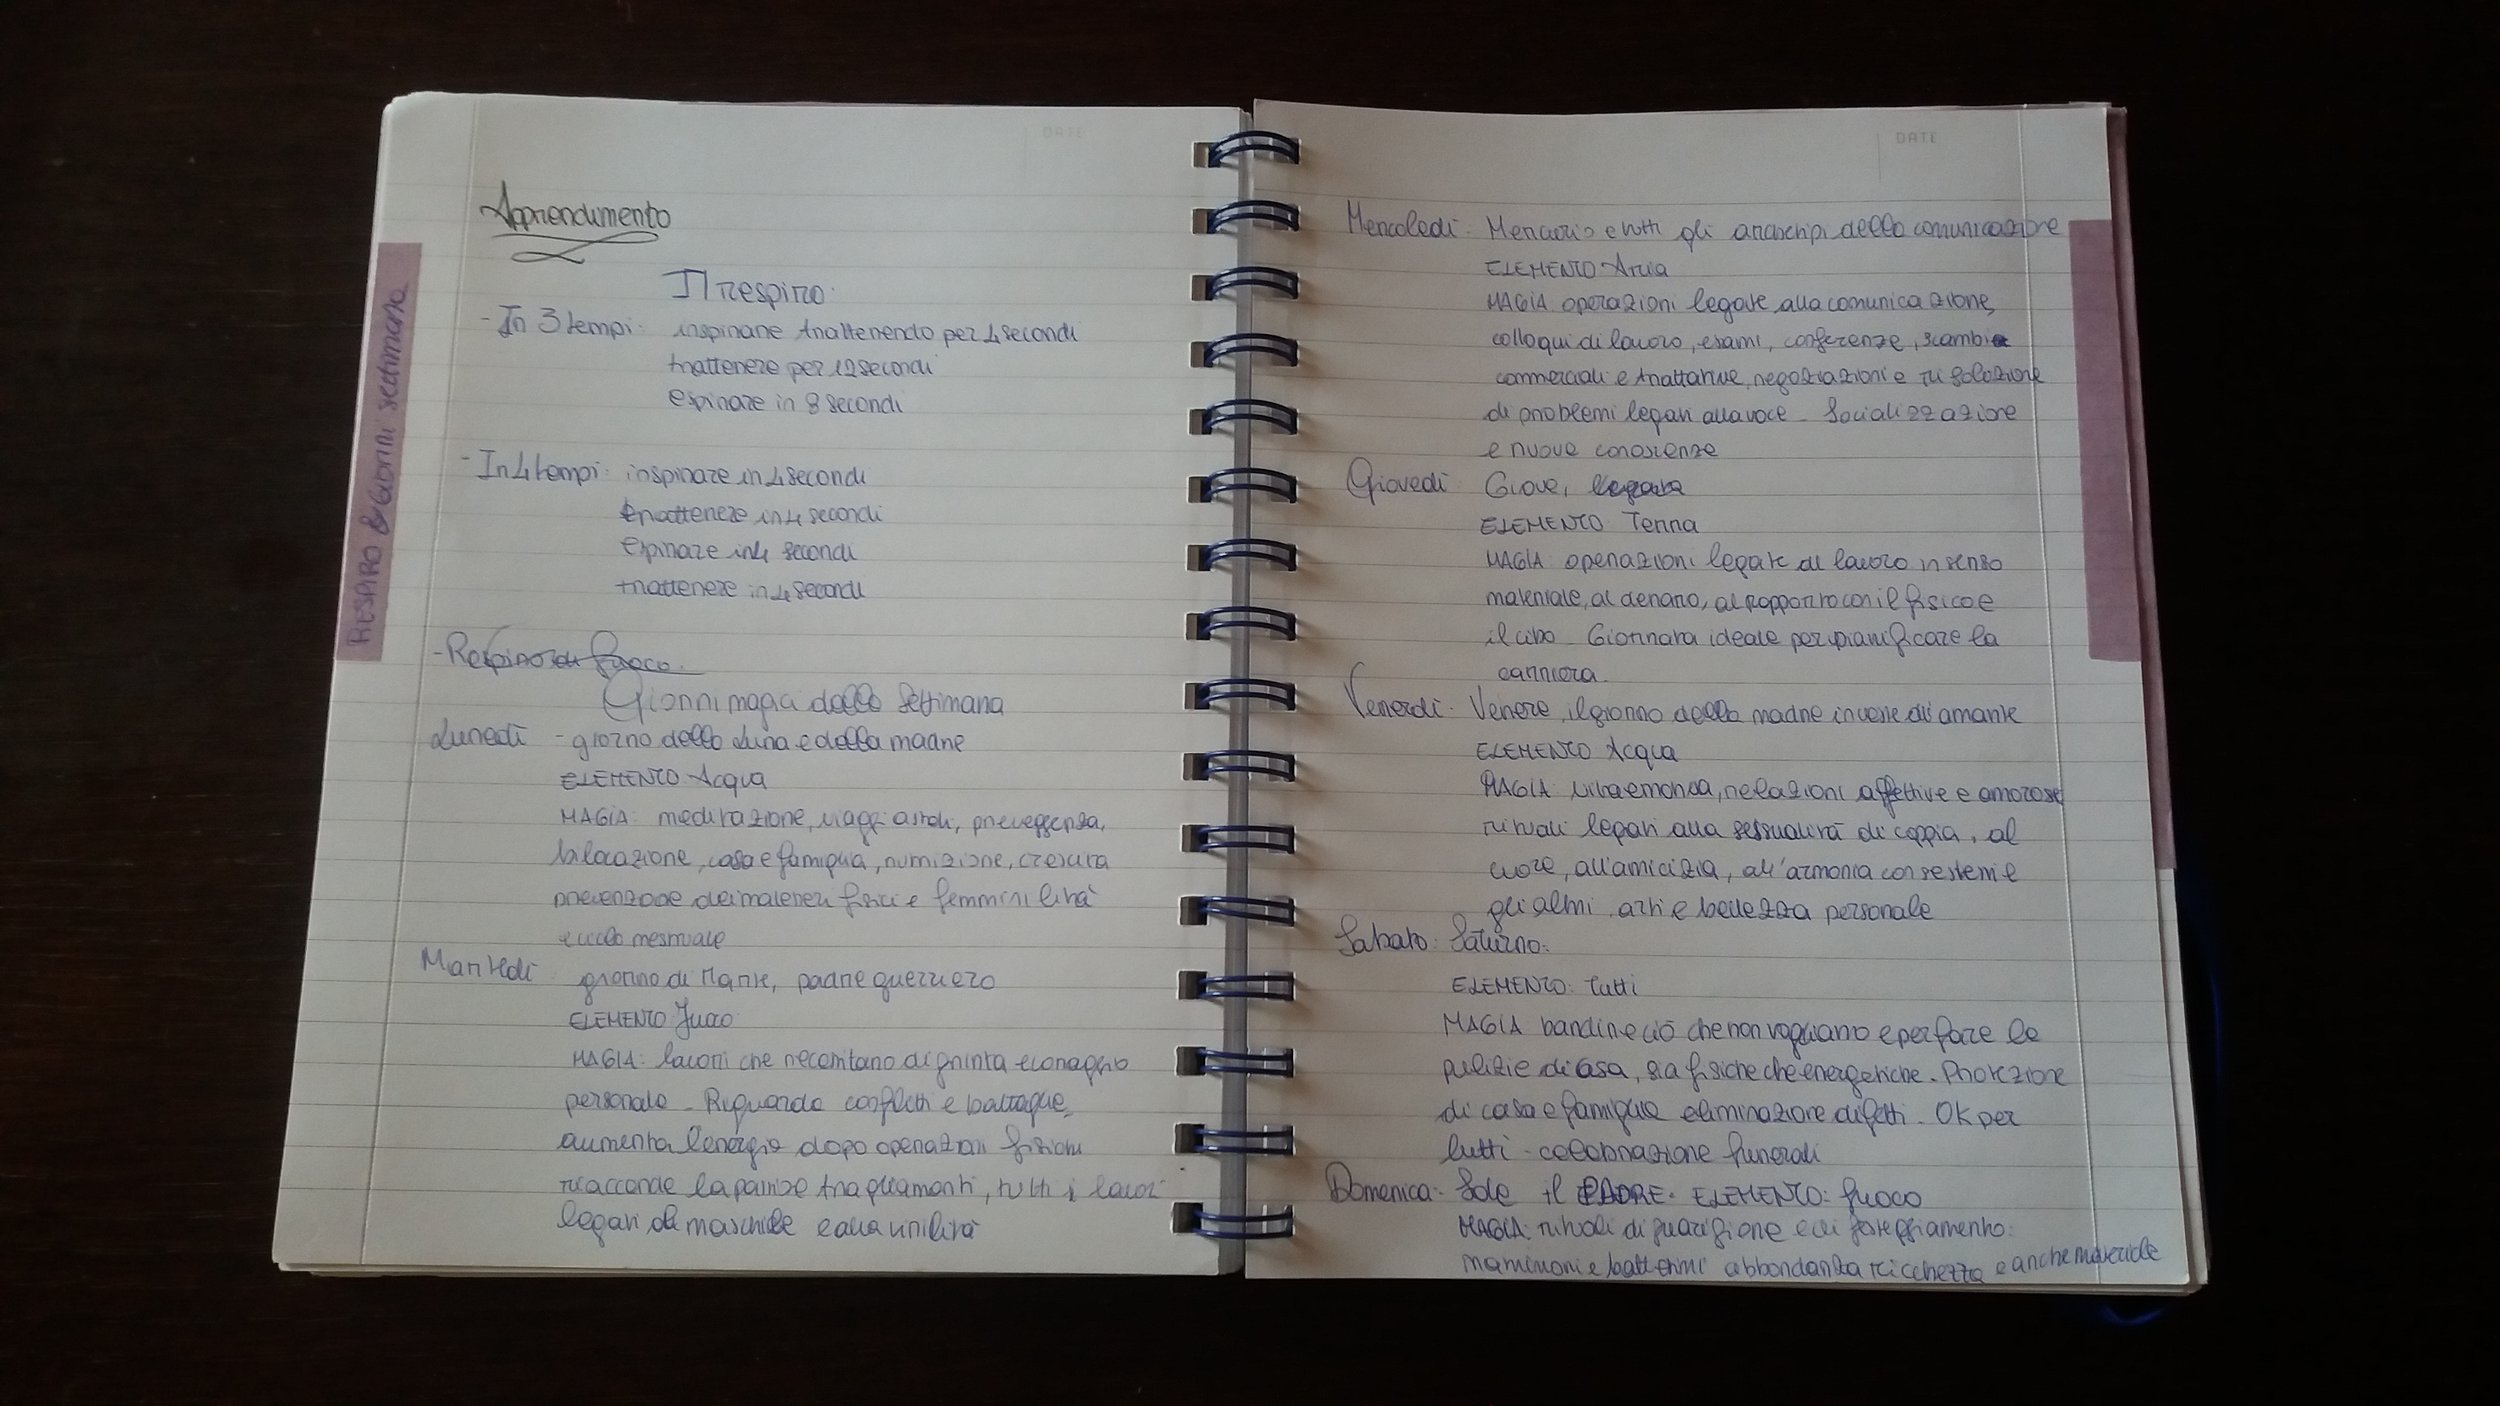 DATE
Apprendimento
RESPIRO & Giorni settimana
Il respiro
- In 3 tempi: inspirare trattenendo per 4 secondi
trattenere per 12 secondi
espirare in 8 secondi
- In 4 tempi: inspirare in 4 secondi
trattenere in 4 secondi
espirare in 4 secondi
trattenere in 4 secondi
- Respiro di fuoco.
Giorni magici della Settimana
Lunedì - giorno della Luna e della madre
ELEMENTO Acqua
MAGIA: meditazione, viaggi astrali, preveggenza,
bilocazione, casa e famiglia, nutrizione, crescita
prevenzione dei malesseri fisici e femminilità
e ciclo mestruale
Martedì giorno di Marte, padre guerriero
ELEMENTO Fuoco
MAGIA: lavori che necessitano di grinta e coraggio
personale - Riguarda conflitti e battaglie,
aumenta l'energia dopo operazioni fisiche
riaccende la passione tra gli amanti, tutti i lavori
legati al maschile e alla virilità
DATE
Mercoledì: Mercurio e tutti gli archetipi della comunicazione
ELEMENTO Aria
MAGIA operazioni legate alla comunicazione,
colloqui di lavoro, esami, conferenze, scambi
commerciali e trattative, negoziazioni e risoluzione
di problemi legati alla voce - Socializzazione
e nuove conoscenze
Giovedì Giove,
ELEMENTO Terra
MAGIA: operazioni legate al lavoro in senso
materiale, al denaro, al rapporto con il fisico e
il cibo - Giornata ideale per pianificare la
carriera.
Venerdì: Venere, il giorno della madre in veste di amante
ELEMENTO Acqua
MAGIA: relazioni affettive e amorose
rituali legati alla sessualità di coppia, al
cuore, all'amicizia, all'armonia con se stessi e
gli altri, arti e bellezza personale
Sabato: Saturno:
ELEMENTO: tutti
MAGIA bandire ciò che non vogliamo e per fare le
pulizie di casa, sia fisiche che energetiche. Protezione
di casa e famiglia eliminazione difetti. OK per
lutti - celebrazione funerali
Domenica: Sole il PADRE. ELEMENTO: fuoco
MAGIA: rituali di guarigione e di festeggiamento:
matrimoni e battesimi abbondanza ricchezza e anche materiale